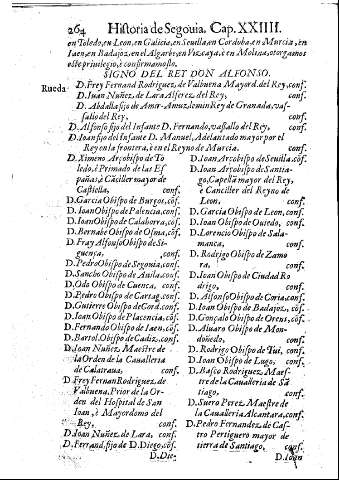 264 Historia de Segouia. Cap. XXIIII.
en Toledo, en Leon, en Galicia, en Seuilla, en Cordoba en Murcia, en
Iaen, en Badajoz, en el Algarbe, en Vizcaya, è en Molina, otorgamos
este priuilegio, è confirmamoslo.
SIGNO DEL RET DON ALFONSO.
Rueda
D. Frey Fernand Rodriguez, de Valbuena Mayoral. del Rey, conf.
D. Iuan Nuñez, de Lara Alferez del Rey, conf.
D. Abdalla fijo de Amir Rey de Granada, vas-
sallo del Rey, conf.
D. Alfonso fijo del Infante D. Fernando, vassallo del Rey, conf.
D. Ioan fijo del Infante D. Manuel, Adelantado mayor por el
Rey en la frontera, è en el Reyno de Murcia. conf.
D. Ximeno Arçobispo de To-
ledo, è Primado de las Es-
pañas; è Cãciller mayor de
Castiella, conf.
D. Garcia Obispo de Burgos, cõf.
D. Ioan Obispo de Palencia, conf.
D. Ioan Obispo de Calahorra, cõf.
D. Bernabe Obispo de Osma, cõf.
D. Fray Alfonso Obispo de Si-
guença, conf.
D. Pedro Obispo de Segouia, conf.
D. Sancho Obispo de Auila, conf.
D. Odo Obispo de Cuenca, conf.
D. Pedro Obispo de Cartag. conf.
D. Gutierre Obispo de Cord. conf.
D. Ioan Obispo de Plasencia, cõf.
D. Fernando Obispo de Iaen, cõf.
D. Bartol. Obispo de Cadiz. conf.
D. Ioan Nuñez, Maestre de
la Orden de la Cauallaria
de Calatraua, conf.
D. Frey Fernan Rodriguez, de
Valbuena, Prior de la Or-
den del Hospital de San
Ioan, è Mayordomo del
Rey, conf.
D. Ioan Nuñez de Lara, conf.
D. Ferrand, fijo de D. Diego, cõf.
D. Die-
D. Ioan Arçobispo de Seuilla, cõf.
D. Ioan Arçobispo de Santia-
go, Capellã mayor del Rey,
è Canciller del Reyno de
Leon, conf.
D. Garcia Obispo de Leon, conf.
D. Ioan Obispo de Ouiedo, conf.
D. Lorencio Obispo de Sala-
manca, conf.
D. Rodrigo Obispo de Zamo
ra, conf.
D. Ioan Obispo de Ciudad Ro
drigo, conf.
D. Alfonso Obispo de Coria, conf.
D. Ioan Obispo de Badajoz, cõf.
D. Gonçalo Obispo de Orens, cõf.
D. Aluaro Obispo de Mon-
doñedo, conf.
D. Rodrigo Obispo de Tui, conf.
D. Ioan Obispo de Lugo, conf.
D. Basco Rodriguez, Maes-
tre de la Cauallaria de Sã
tiago, conf.
D. Suero Perez Maestre de
la Cauallaria Alcantara, conf.
D. Pedro Fernandez, de Cas-
tro Pertiguero mayor de
tierra de Santiago, conf.
D. Ioan